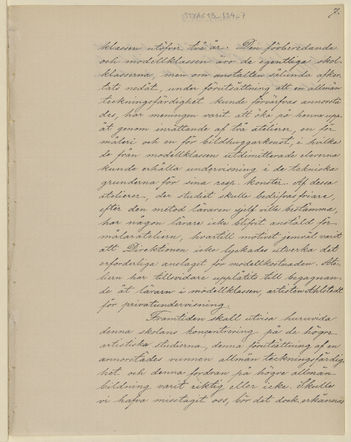 7.
klassen utöfvir två år. Den förberedande
och modellklassen äro de egentliga skol-
klasserna, men om anstalten sålunda afkor-
tats nedåt, under förutsättning att en allmän
teckningsfärdighet kunde förvärfvas annorstä-
des, har meningen varit att öka på henne upp-
åt genom inrättande af två atelierer, en för
måleri och en för bildhuggarkonst, i hvilka
de från modellklassen utdimitterade eleverna
kunde erhålla undervisning i de tekniska
grunderna för sina resp. konster. Af dessa
atelierer, der studiet skulle bedrifvas friare,
efter den metod läraren gifvits bestämma,
har någon lärare icke blifvit anstäld för
målareatelieren, hvartill motivet jemväl varit
att Direktionen icke lyckades utverka det
erforderliga anslaget för modellkostnaden. Ate-
lieren har tillsvidare upplåtits till begagnan-
de åt läraren i modellklassen, artisten Ahlstedt
för privatundervisning.
Framtiden skall utvisa huruvida
denna skolans koncentrering på de högre
artistiska studierna, denna förutsättning af en
annorstädes vunnen allmän teckningsfärdig-
het och denna fordran på högre allmän
bildning varit riktig eller icke. Skulle
vi hafva misstagit oss, bör det dock erkännas